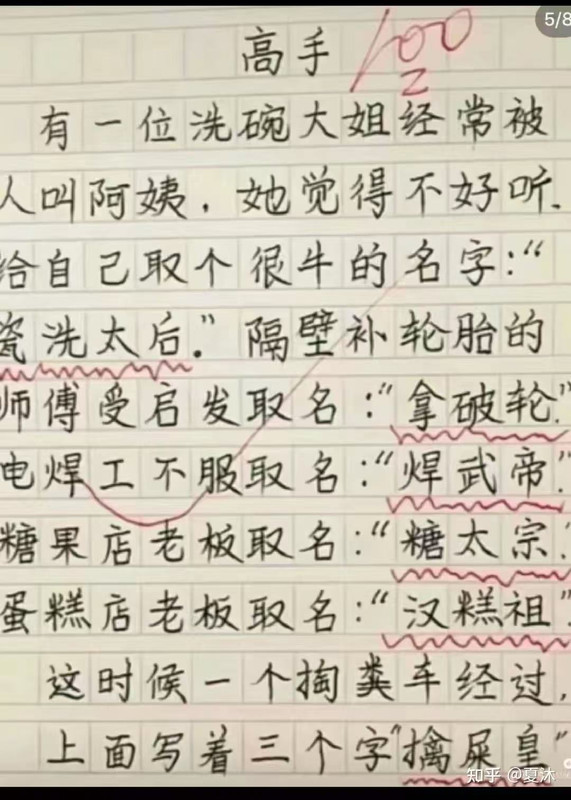 5/8
高手 100
有一位洗碗大姐经常被
人叫阿姨，她觉得不好听.
给自己取个很牛的名字:“
瓷洗太后.”隔壁补轮胎的
师傅受启发取名:“拿破轮.”
电焊工不服取名:“焊武帝.”
糖果店老板取名:“糖太宗.
蛋糕店老板取名:“汉糕祖”
这时候一个掏粪车经过,
上面写着三个字“擒屎皇”
知乎 @夏沐